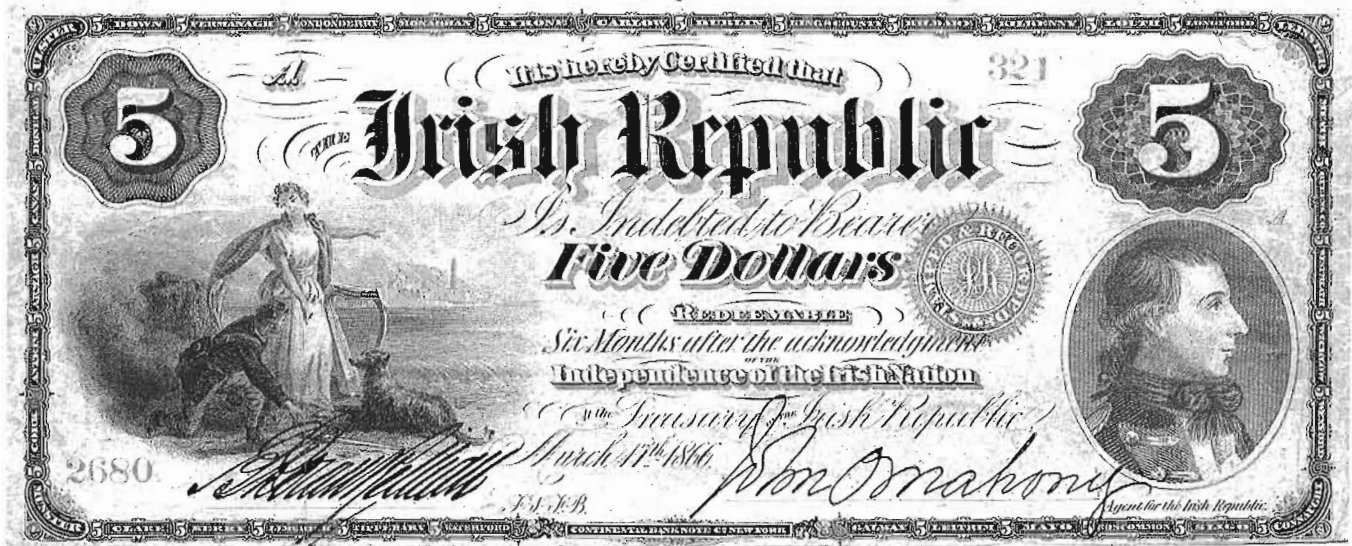 5 DOWN 5 FERMANAGH 5 LONDONDERRY 5 MONAGHAN 5 TYRONE 5 CARLOW 5 DUBLIN 5 5 KILDARE 5 KILKENNY 5 5 LONGFORD 5
ULSTER
LEINSTER
It is hereby Certified that
A1
321
5
THE Irish Republic
5
Is Indebted to Bearer
Five Dollars
REDEEMABLE
Six Months after the acknowledgment
OF THE
Independence of the Irish Nation
At the Treasury of the Irish Republic
March 17th 1866
2680.
John O'Mahony
Agent for the Irish Republic.
DONEGAL 5 CAVAN 5 ARMAGH 5 ANTRIM 5 CORK 5
MUNSTER
CONNAUGHT
5 CLARE 5 KERRY 5 LIMERICK 5 TIPPERARY 5 WATERFORD 5
CONTINENTAL BANK NOTE CO NEW YORK
GALWAY 5 LEITRIM 5 MAYO 5 ROSCOMMON 5 SLIGO 5